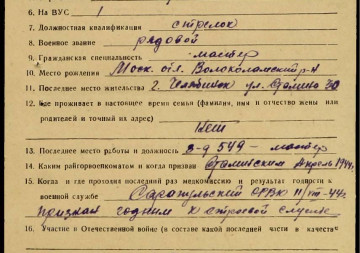 6. На ВУС 1
7. Должностная квалификация стрелок
8. Военное звание рядовой
9. Гражданская специальность мастер
10. Место рождения Моск. обл. Волоколамский р-н
11. Последнее место жительства г. Челябинск ул. Сталина 30
12. Где проживает в настоящее время семья (фамилия, имя и отчество жены или
родителей и точный их адрес)
Нет
13. Последнее место работы и должность з-д 549 – мастер
14. Каким райгорвоенкоматом и когда призван Сталинским Апрель 1944 г.
15. Когда и где проходил последний раз медкомиссию и результат годности к
военной службе Сарапульский ОРВК 11/VIII-44 г.
признан годным к строевой службе
16. Участие в Отечественной войне (в составе какой последней части и в качеств